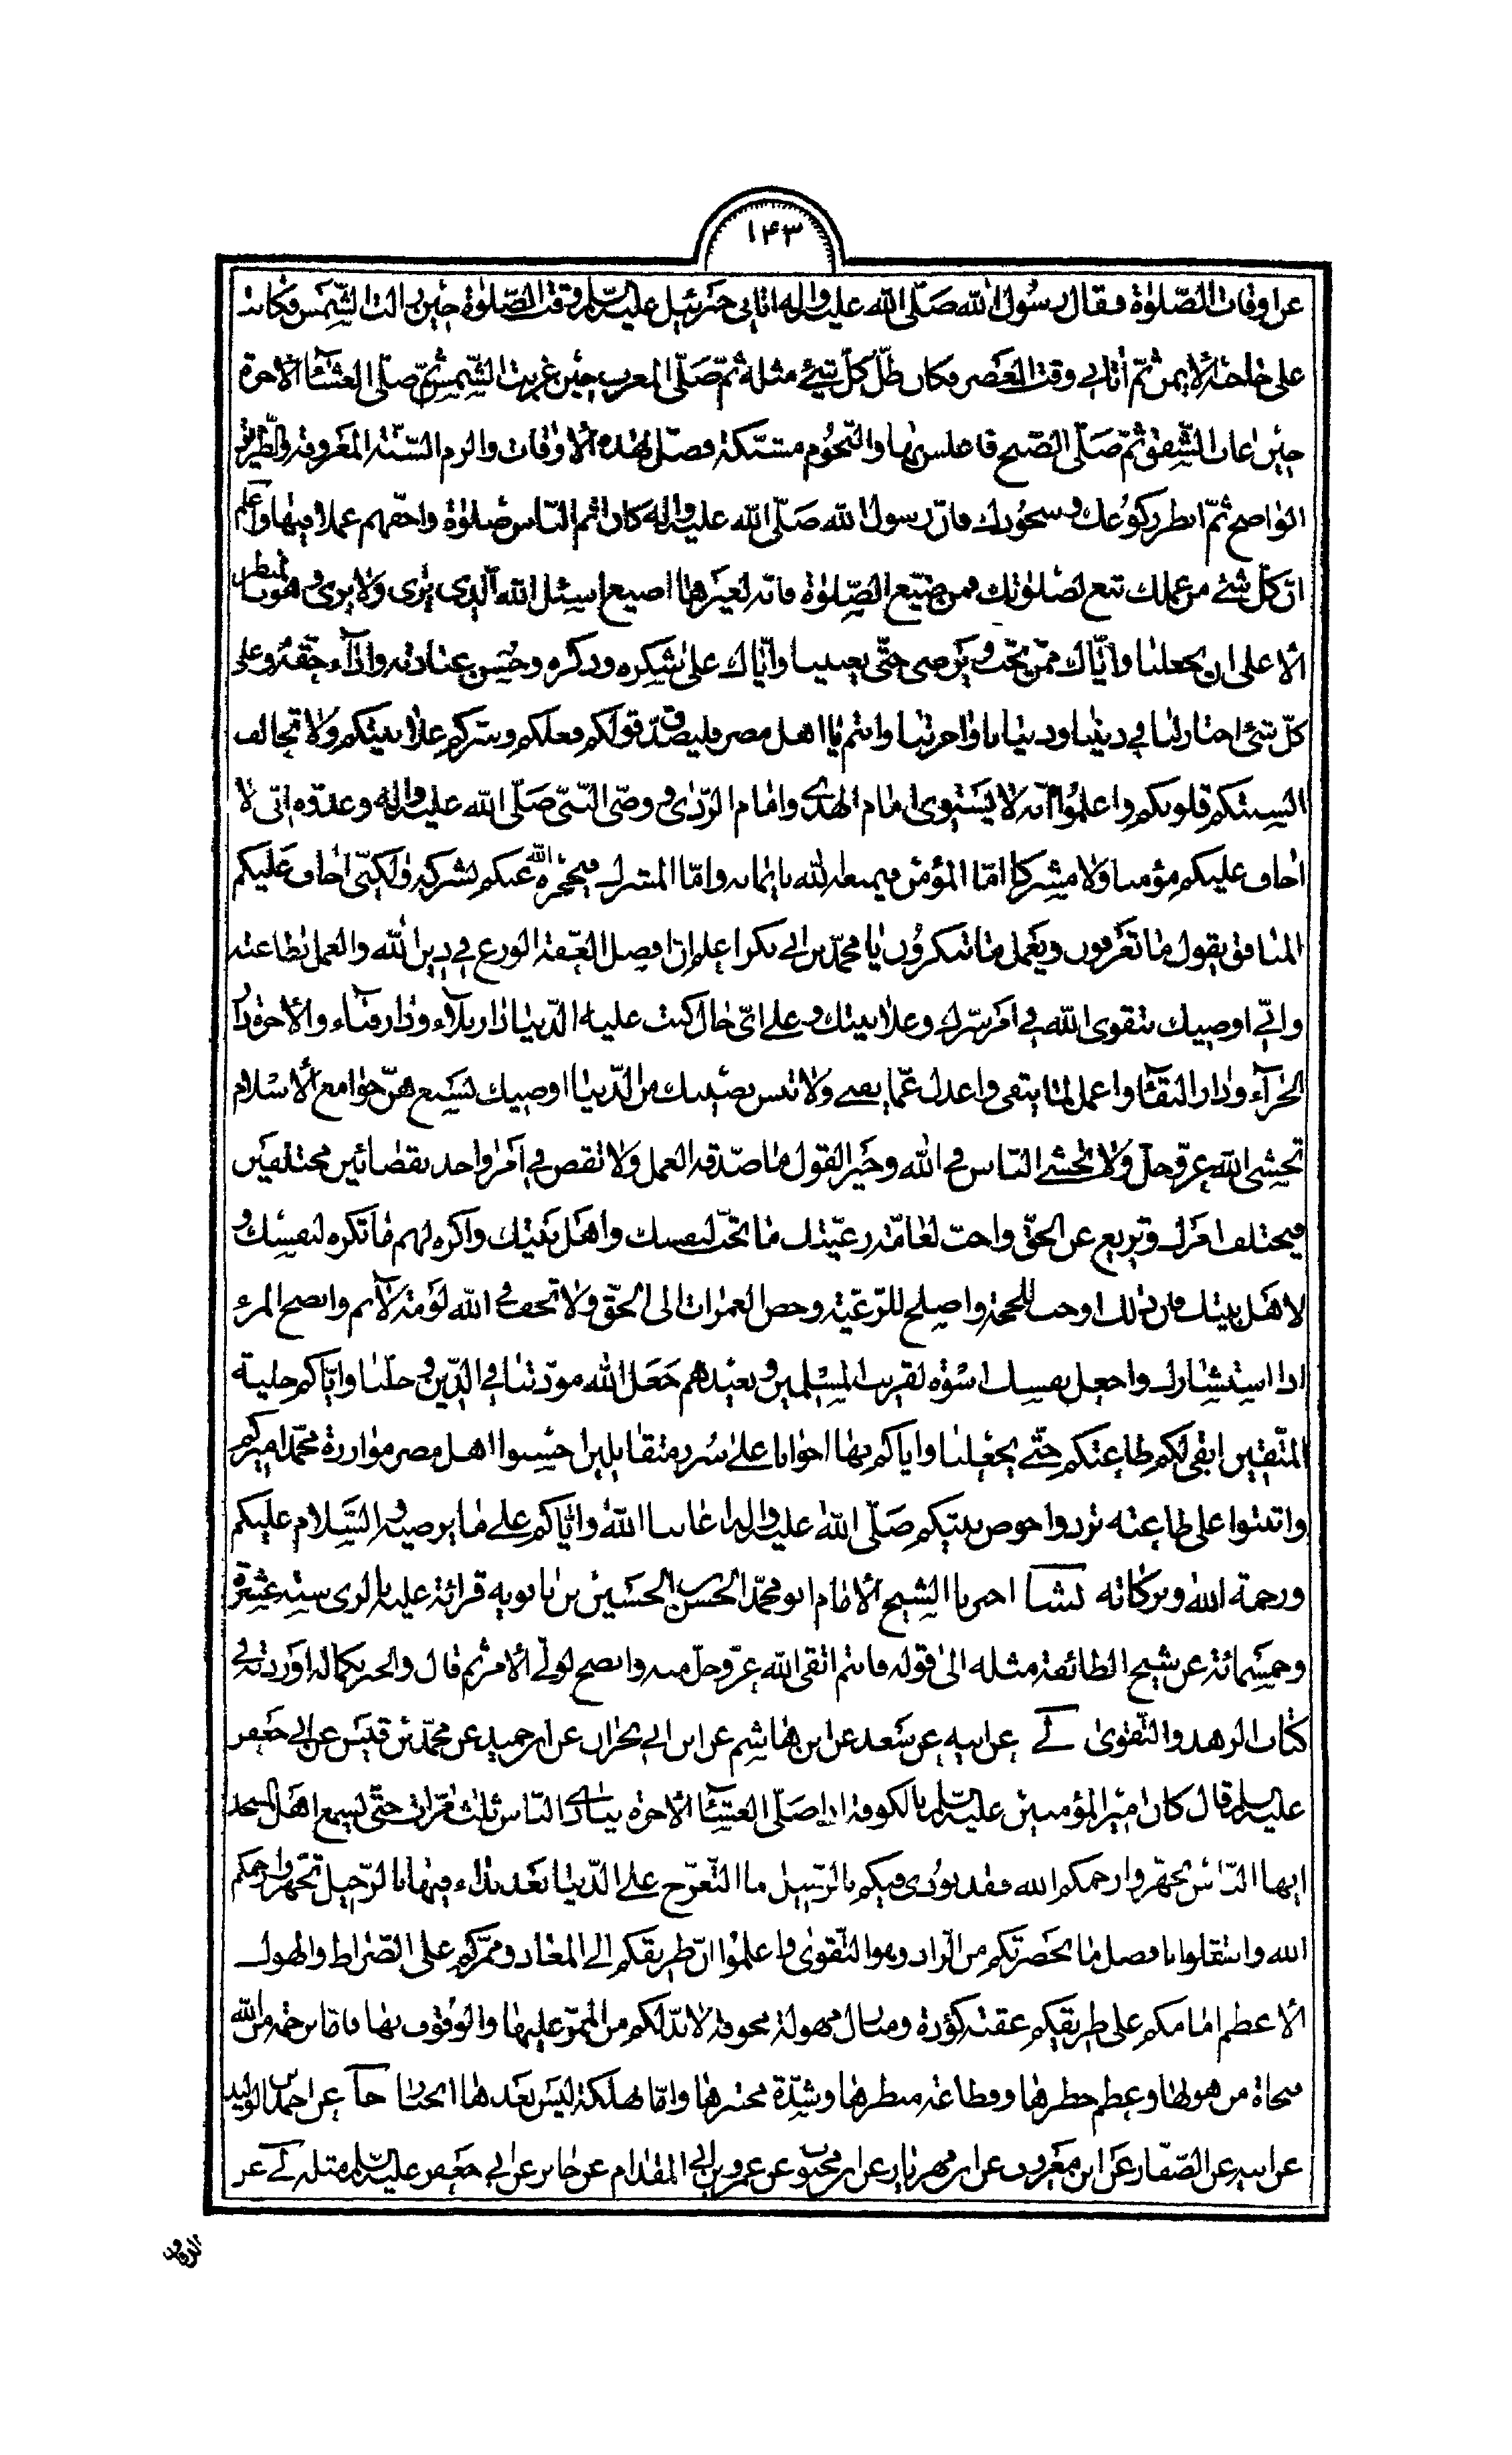 ١٤٣
عن اوقات الصّلوة فقال رسول الله صلّى الله عليه واله اتاني جبرئيل عليه السّلم وقت الصّلوة حين زالت الشّمس فكانت
على حاجبه الأيمن ثمّ أتاني وقت العصر فكان ظلّ كلّ شيء مثله ثمّ صلّى المغرب حين غربت الشّمس ثمّ صلّى العشاء الاخرة
حين غاب الشّفق ثمّ صلّى الصّبح فاغلس بها والنّجوم مشتبكة فصلّ لهذه الأوقات والزم السّنّة المعروفة والطّريق
الواضح ثمّ انظر ركوعك وسجودك فانّ رسول الله صلّى الله عليه واله كان اتمّ النّاس صلوة واحقّهم عملا فيها واعلم
انّ كلّ شئ من عملك تبع لصلوتك فمن ضيّع الصّلوة فانّه لغيرها اضيع اسئل الله الّذي يرى ولا يرى وهو بالمنظر
الأعلى ان يجعلنا وايّاك ممّن يحبّ ويرضى حتّى يعيننا وايّاك على شكره وذكره وحسن عبادته واداء حقّه وعلى
كلّ شئ اختار لنا في ديننا ودنيانا واخرتنا وانتم يا اهل مصر فليصدّق قولكم فعلكم وسرّكم علانيتكم ولا تخالف
السنتكم قلوبكم واعلموا انّه لا يستوى امام الهدى وامام الرّدى ووصّى النّبىّ صلّى الله عليه واله وعدوّه انّى لا
اخاف عليكم مؤمنا ولا مشركا امّا المؤمن فيمنعه الله بايمانه وامّا المشرك فيحجزه الله عنكم بشركه ولكنّى اخاف عليكم
المنافق يقول ما تعرفون ويعمل ما تنكرون يا محمّد بن ابي بكر اعلم انّ افضل العفّة الورع في دين الله والعمل بطاعته
وانّي اوصيك بتقوى الله في امر سرّك وعلانيتك وعلى اىّ حال كنت عليه الدّنيا دار بلاء ودار فناء والأخرة دار
الجزاء ودار البقاء واعمل لما يبقى واعدل عمّا يفنى ولا تنس نصيبك من الدّنيا اوصيك بسبع هنّ جوامع الأسلام
تخشى الله عزّ وجلّ ولا تخشى النّاس في الله وخير القول ما صدّقه العمل ولا تقض في امر واحد بقضائين مختلفين
فيختلف امرك وتزيغ عن الحقّ واحبّ لعامّة رعيّتك ما تحبّ لنفسك واهل بيتك واكره لهم ما تكره لنفسك و
لاهل بيتك فانّ ذلك اوجب للحجّة واصلح للرّعيّة وخض الغمرات الى الحقّ ولا تخف في الله لومة لائم وانصح المرء
اذا استشارك واجعل نفسك اسوة لقريب المسلمين وبعيدهم جعل الله مودّتنا في الدّين وحلّنا وايّاكم حلية
المتّقين ابقى لكم طاعتكم حتّى يجعلنا وايّاكم بها اخوانا على سرر متقابلين احسنوا اهل مصر موازرة محمّد اميركم
واثبتوا على طاعته تردوا حوض نبيّكم صلّى الله عليه واله اعاننا الله وايّاكم على ما يرضيه والسّلام عليكم
ورحمة الله وبركاته بشا اخبرنا الشيخ الأمام ابو محمّد الحسن بن الحسين بن بابويه قرائة عليه بالرى سنة عشرة
وخمسمائة عن شيخ الطائفة مثله الى قوله فانتم اتقى الله عزّ وجلّ منه وانصح لولى الأمر ثم قال والخبر بكماله اوردته في
كتاب الزهد والتّقوى لى عن ابيه عن سعد عن ابن هاشم عن ابن ابي نجران عن ابن حميد عن محمّد بن قيس عن ابي جعفر
عليه السّلم قال كان امير المؤمنين عليه السّلم بالكوفة اذا صلّى العشاء الأخرة ينادى النّاس ثلث مرّات حتّى يسمع اهل المسجد
ايها النّاس تجهزوا رحمكم الله فقد نودى فيكم بالرّحيل فما التّعرّج على الدّنيا بعد نداء فيها بالرّحيل تجهزوا رحمكم
الله وانتقلوا بافضل ما بحضرتكم من الزاد وهو التّقوى واعلموا انّ طريقكم الى المعاد وممرّكم على الصّراط والهول
الأعظم امامكم على طريقكم عقبة كؤدة ومنازل مهولة مخوفة لا بدّ لكم من الممرّ عليها والوقوف بها فامّا برحمة من الله
فنجاة من هولها وعظم خطرها وفظاعة منظرها وشدّة مختبرها وامّا بهلكة ليس بعدها انجبار جا عن احمد بن الوليد
عن ابيه عن الصّفّار عن ابن معروف عن ابن مهزيار عن ابن محبوب عن عمرو بن ابي المقدام عن جابر عن ابي جعفر عليه السّلم مثله لى عن